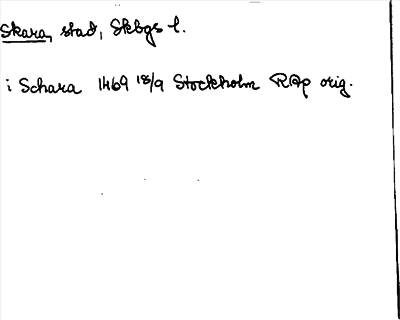 Skara, stad, Skbgs l.
i Schara 1469 18/9 Stockholm RAp orig.